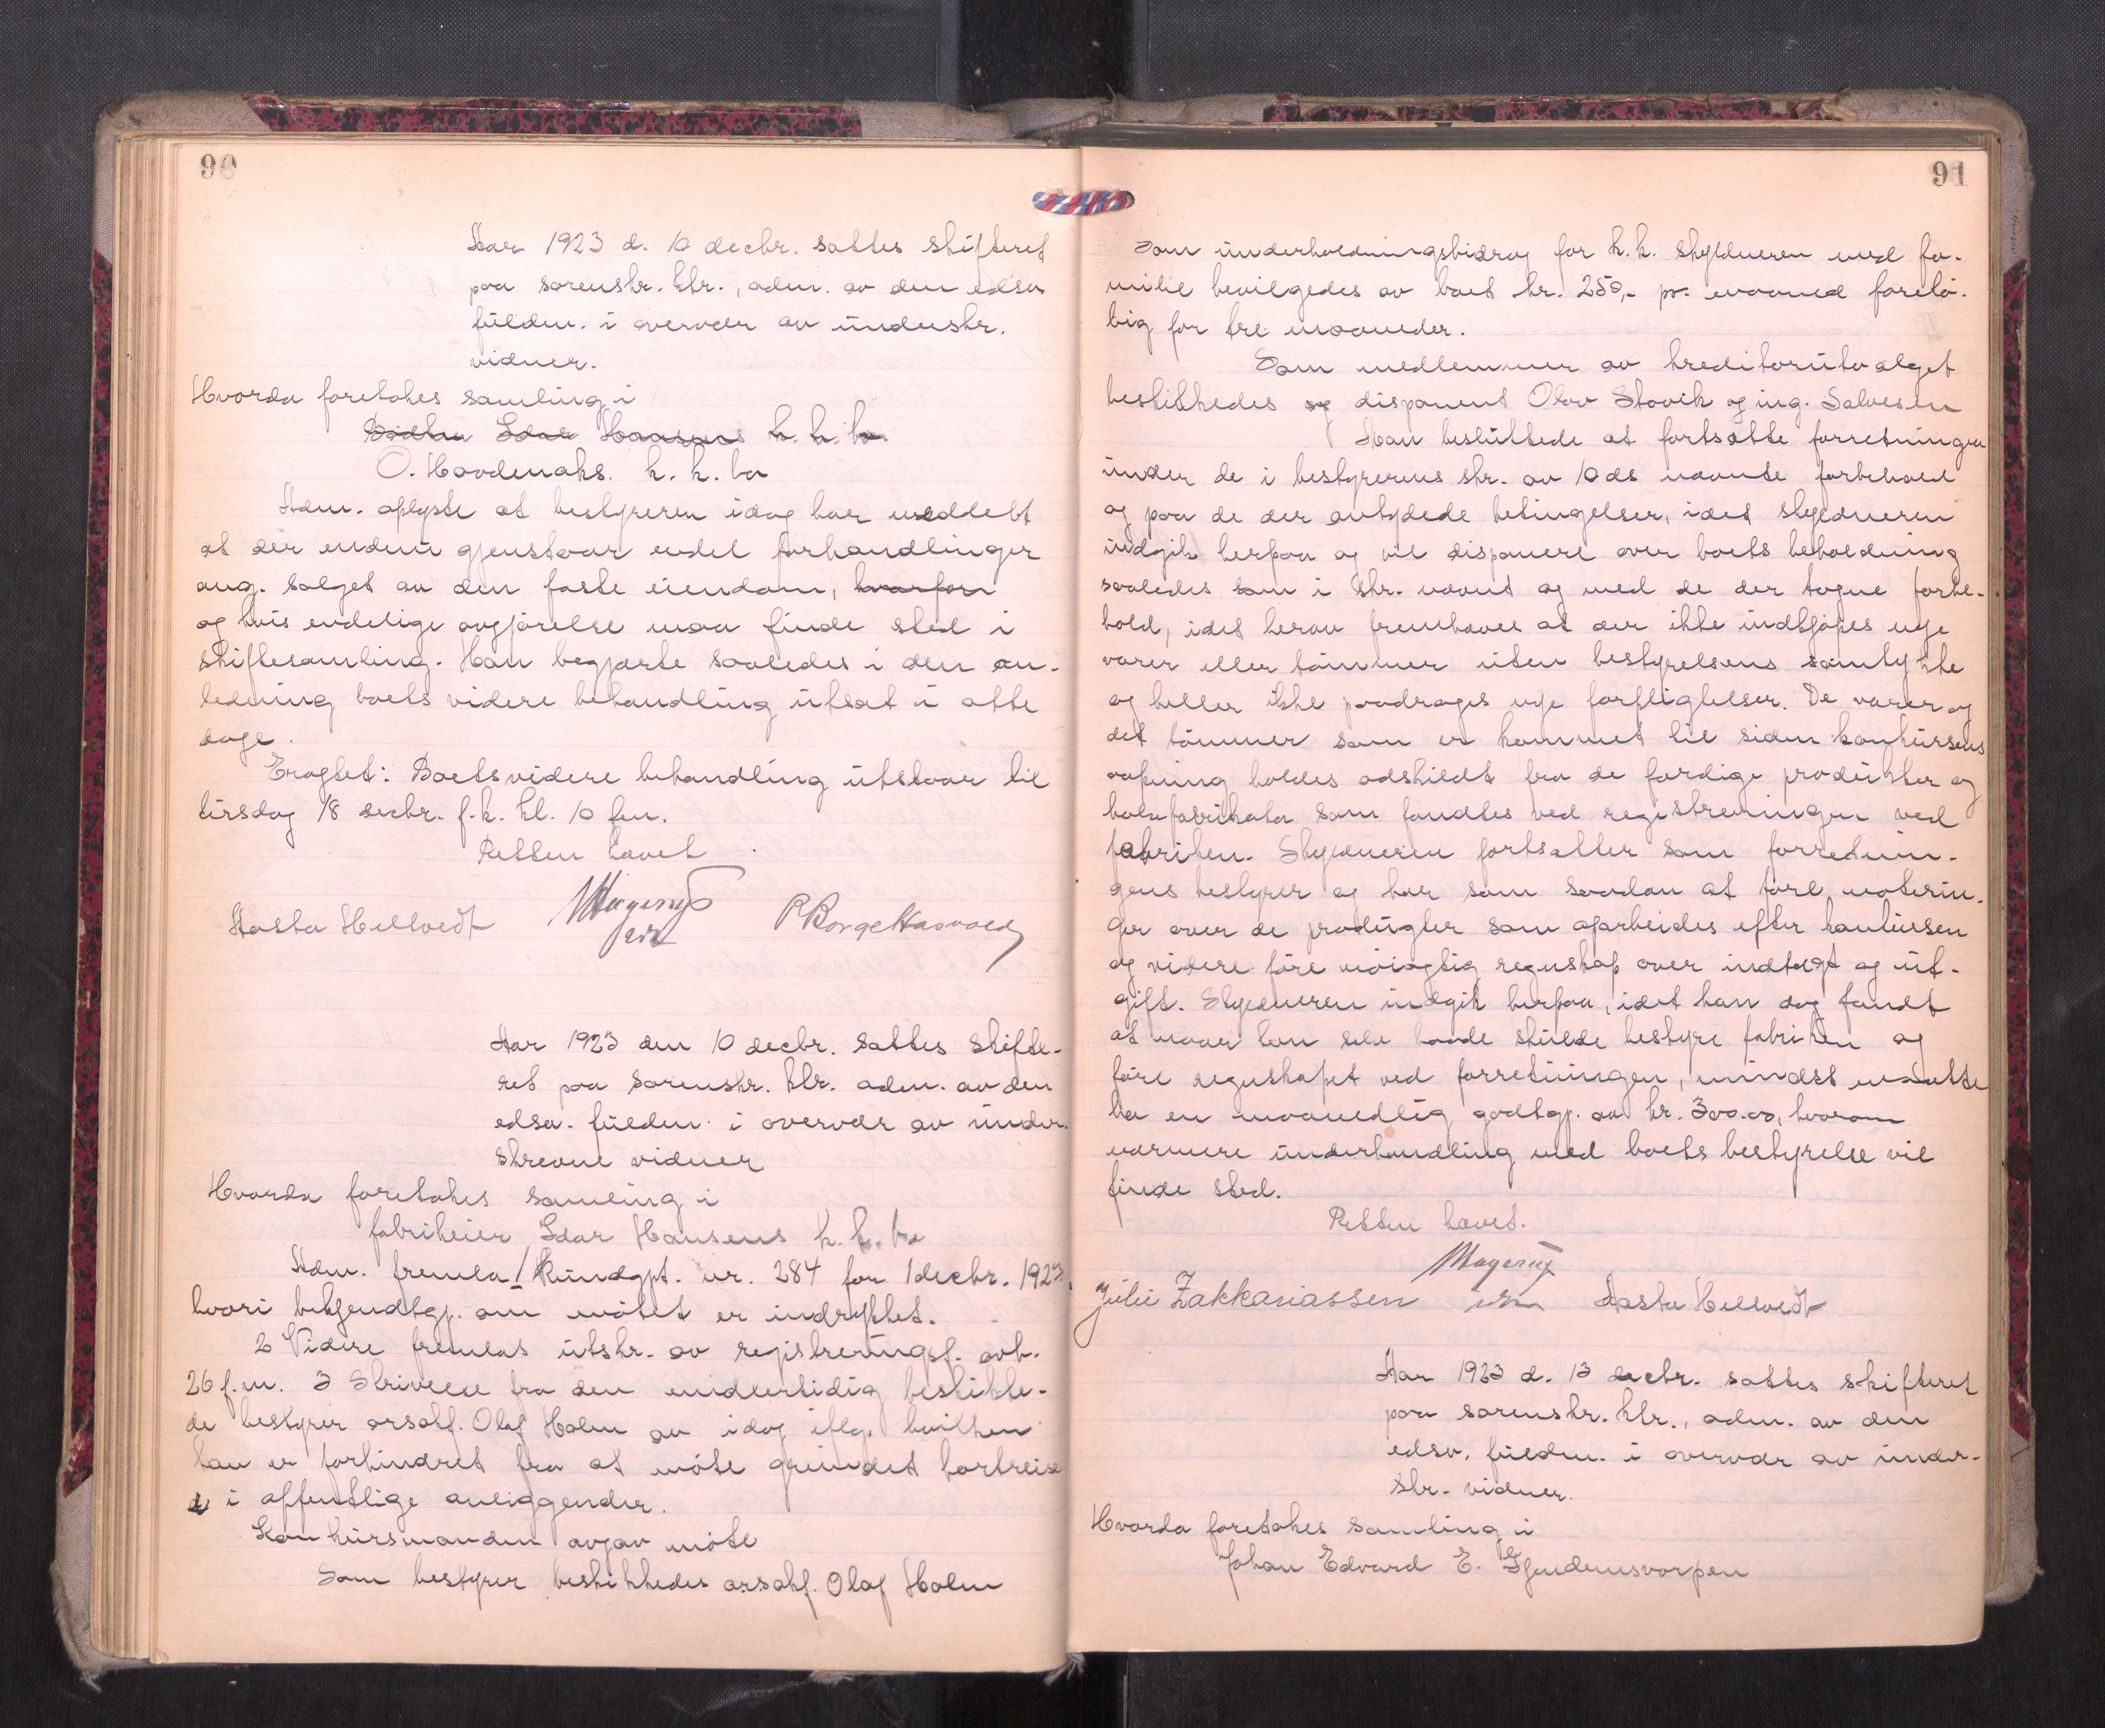 90
Aar 1923 d. 10 decbr. sattes skifteret
paa sorenskr. ktr., adm. av den edsv
fuldm. i overvær av underskr.
vidner.
Hvorda foretokes samling i
Idar Hansens k.k.bo
O. Hovdenaks. k. k. bo
Adm. oplyste at bestyreren idag har meddelt
at der endnu gjenstaar endel forhandlinger
ang. salget av den faste eiendom, hvorfor
og hvis endelige avgjørelse maa finde sted i
skiftesamling. Han begjærte saaledes i den an-
ledning boets videre behandling utsat i otte
dage.
Eragtet: Boets videre behandling utstaar til
tirsdag 18 decbr. f.k. kl. 10 fm.
Retten hævet
Aasta Hellvedt
Hvorda
Aar 1923 den 10 decbr. sattes skifte-
ret paa sorenskr. ktr. adm. av den
edsv. fuldm. i overvær av under-
skrevne vidner.
Hvorda foretokes samling i
fabrikeier Idar Hansens k.k.bo
Adm. fremla 1 Kundgpt. nr. 284 for 1 decbr. 1923,
hvori bekjendtgj. om møtet er indrykket.
2 Videre fremlas utskr. av registreringsf. avh.
26 f.m. 3 Skrivelse fra den midlertidig beskikke-
de bestyrer orsakf. Olaf Holm av idag iflg. hvilken
han er forhindret fra at møte grundet bortreise
i offentlige anliggender.
Konkursmanden avgav møte
Som bestyrer beskikkedes orsakf. Olaf Holm
91
Som underholdningsbidrag for k.k. skyldneren med fa-
milie bevilgedes av boet kr. 250,- pr. maaned forelø-
big for tre maaneder.
Som medlemmer av kreditorutvalget
beskikkedes og disponent Olav Stavik og ing. Salvesen
Man besluttede at fortsætte forretningen
under de i bestyrerens skr. av 10 ds nævnte forbehold
og paa de der antydede betingelser, idet skyldneren
indgik herpaa og vil disponere over boets beholdning
saaledes som i skr. nævnt og med de der tagne forbe-
hold, idet herav fremhæves at der ikke indkjøpes nye
varer eller tømmer uten bestyrelsens samtykke
og heller ikke paadrages nye forpligtelser. De varer og
det tømmer som er kommet til siden konkursens
aapning holdes adskildt fra de færdige produkter og
halvfabrikata som fandtes ved registreringen ved
fabriken. Skyldneren fortsætter som forretnin-
gens bestyrer og har som saadan at føre noterin-
ger over de produgter som oparbeides efter konkursen
og videre føre nøiagtig regnskap over indtægt og ut-
gift. Skyldneren indgik herpaa, idet han dog fandt
at naar han selv baade skulde bestyre fabriken og
føre regnskapet ved forretningen, mindst maatte
ha en maanedlig godtgj. av kr. 300.00, hvorom
nærmere underhandling med boets bestyrelse vil
finde sted.
Retten hævet.
Julie Zakkariassen Aasta Hellvedt
Aar 1923 d. 13 decbr. sattes skifteret
paa sorenskr. ktr., adm. av den
edsv. fuldm. i overvær av under-
skr. vidner.
Hvorda foretokes samling i
Johan Edvard E. Gjendemsvorpen